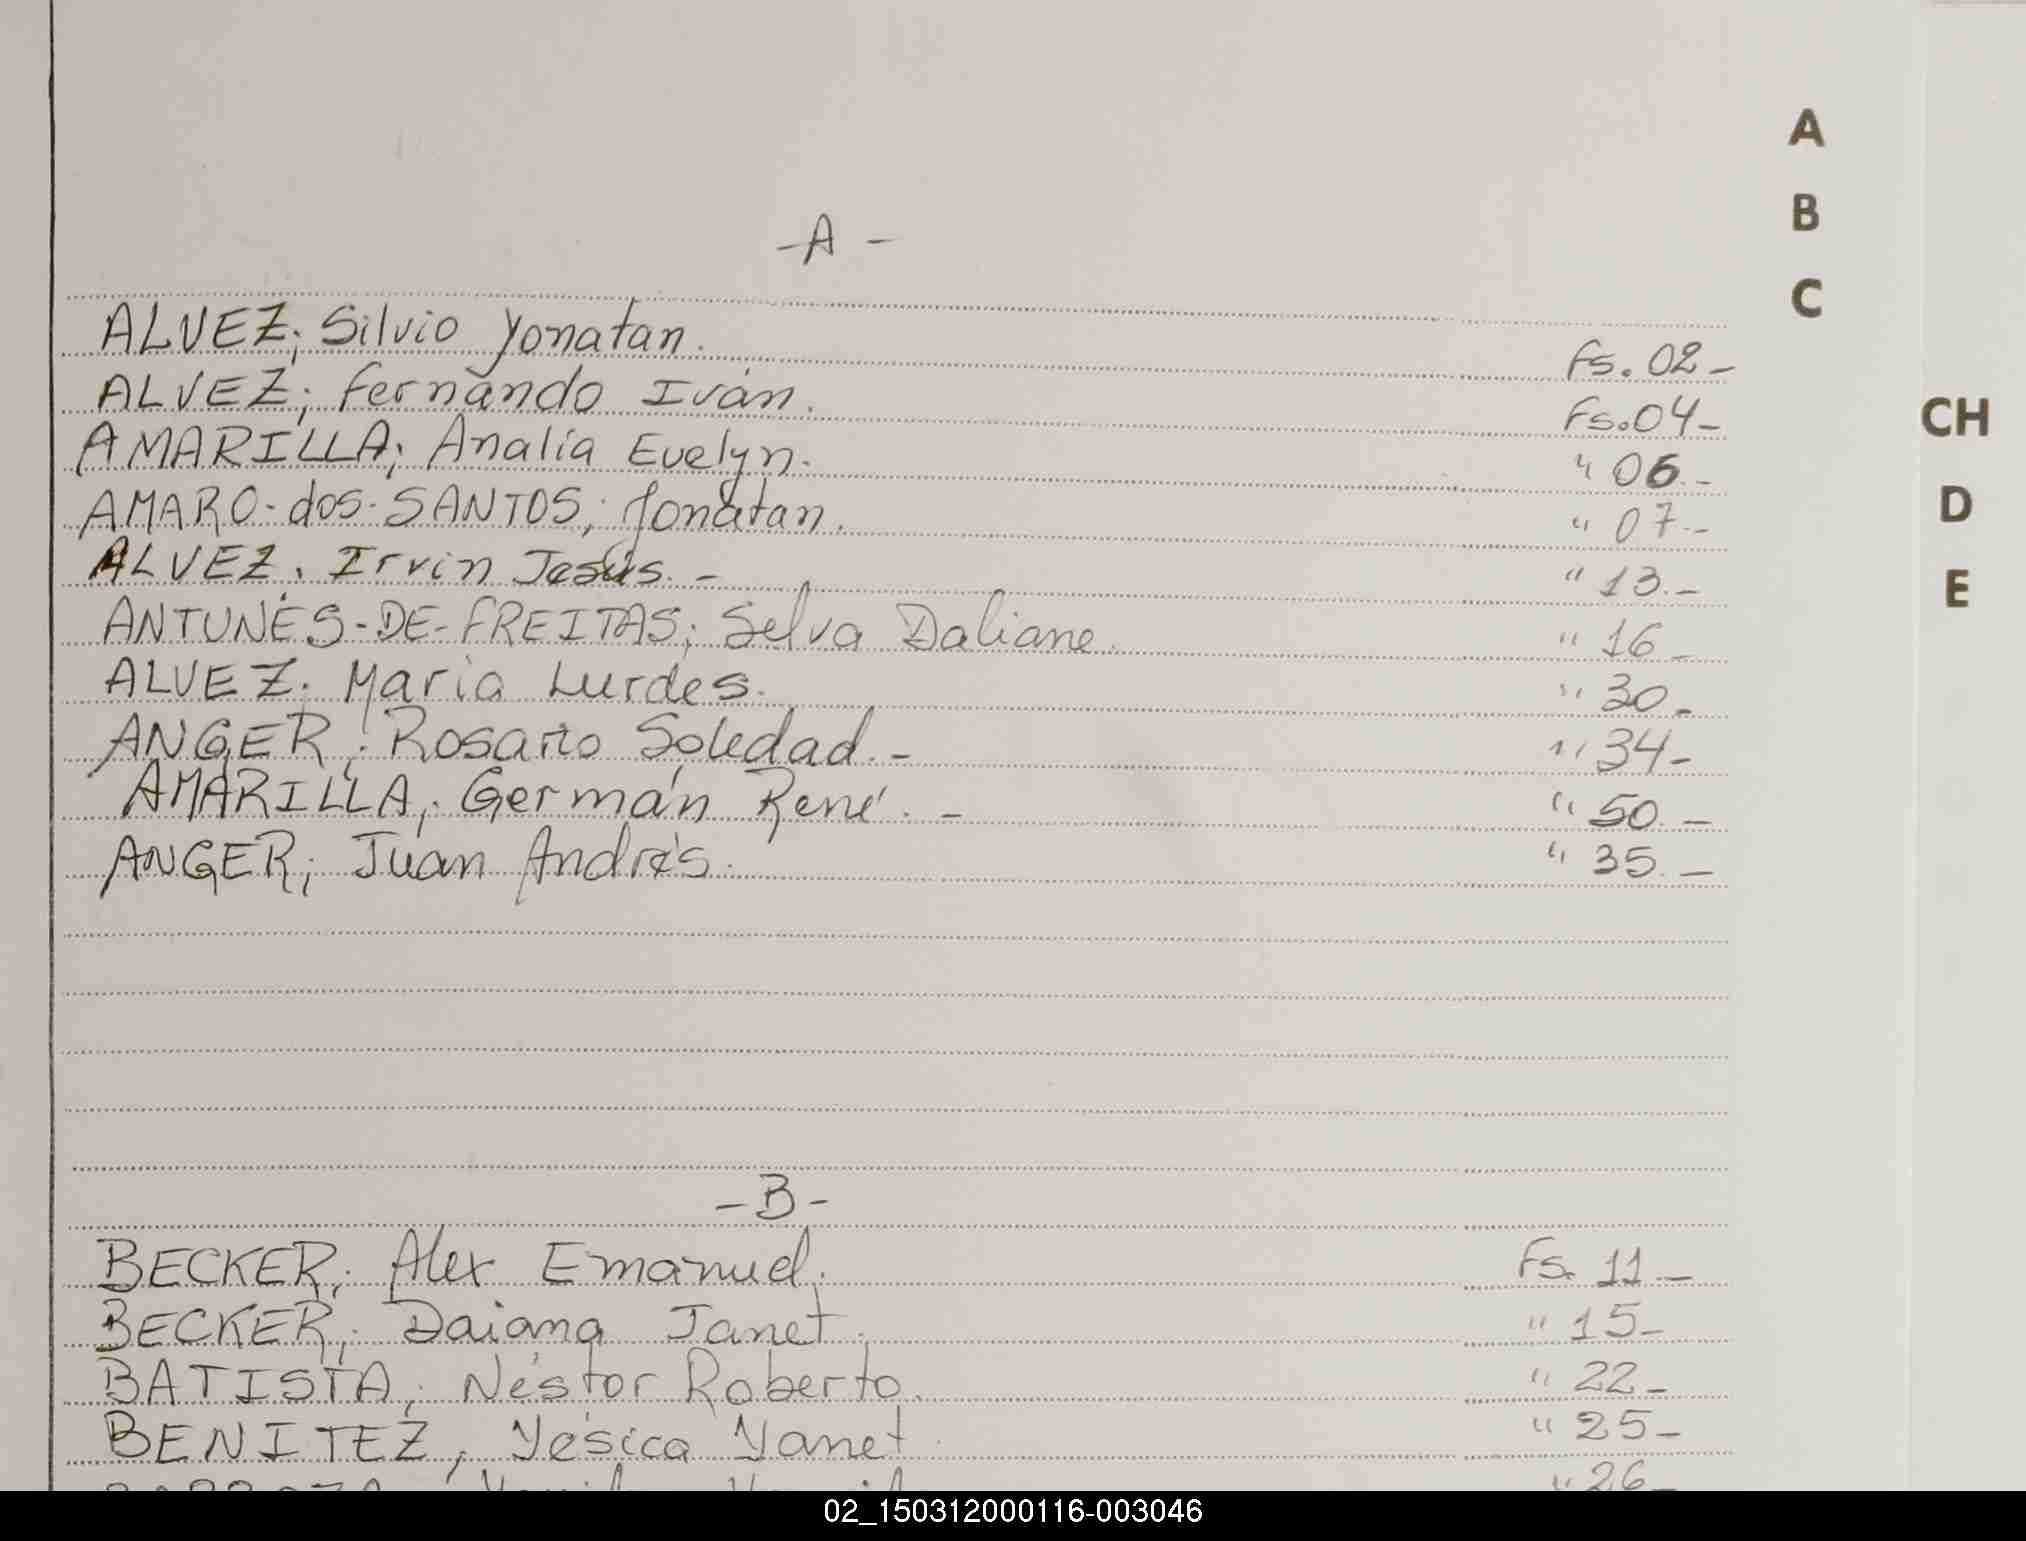 A
B
C
CH
D
E
-A-
ALVEZ; Silvio Yonatan. Fs. 02-
ALVEZ; Fernando Iván. Fs. 04-
AMARILLA; Analía Evelyn. " 06.-
AMARO-dos-SANTOS; Jonatan. " 07.-
ALVEZ. Irvin Jesús.- " 13.-
ANTUNES-DE-FREITAS; Selva Daliane. " 16-
ALVEZ. María Lurdes. " 30-
ANGER; Rosario Soledad.- " 34-
AMARILLA; Germán René.- " 50.-
ANGER; Juan Andrés. " 35.-
-B-
BECKER; Alex Emanuel. Fs. 11-
BECKER; Daiana Janet. " 15-
BATISTA; Néstor Roberto. " 22-
BENITEZ, Yésica Yanet. " 25-
" 26-
02_150312000116-003046